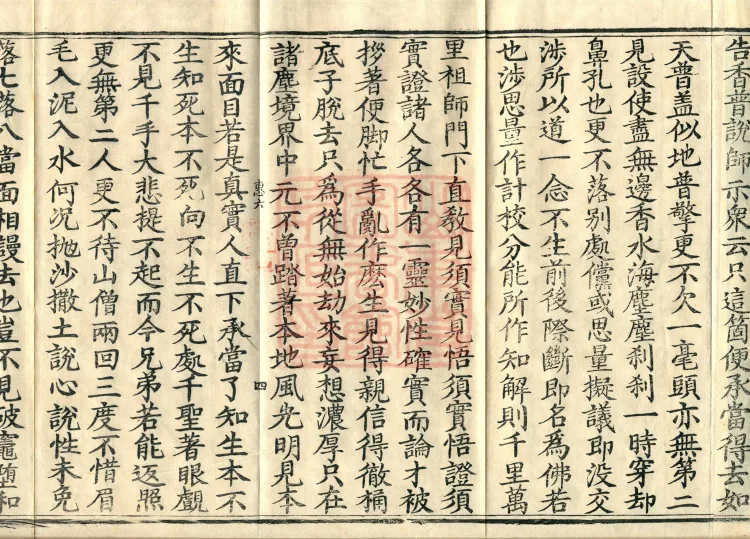 告香普說師示衆云只這箇便承當得去如
天普盖似地普擎更不欠一毫頭亦無第二
見設使盡無邊香水海塵塵刹刹一時穿却
鼻孔也更不落別處儻或思量擬議即没交
涉所以道一念不生前後際斷即名為佛若
也涉思量作計校分能所作知解則千里萬
里祖師門下直教見須實見悟須實悟證須
實證諸人各各有一靈妙性確實而論才被
拶著便脚忙手亂作麽生見得親信得徹桶
底子脫去只為從無始劫來妄想濃厚只在
諸塵境界中元不曾踏著本地風光明見本
惠六
四
來面目若是真實人直下承當了知生本不
生知死本不死向不生不死處千聖著眼覷
不見千手大悲提不起而今兄弟若能返照
更無第二人更不待山僧兩回三度不惜眉
毛入泥入水何況抛沙撒土說心說性未免
落七落八當面相謾去也豈不見破竈堕和